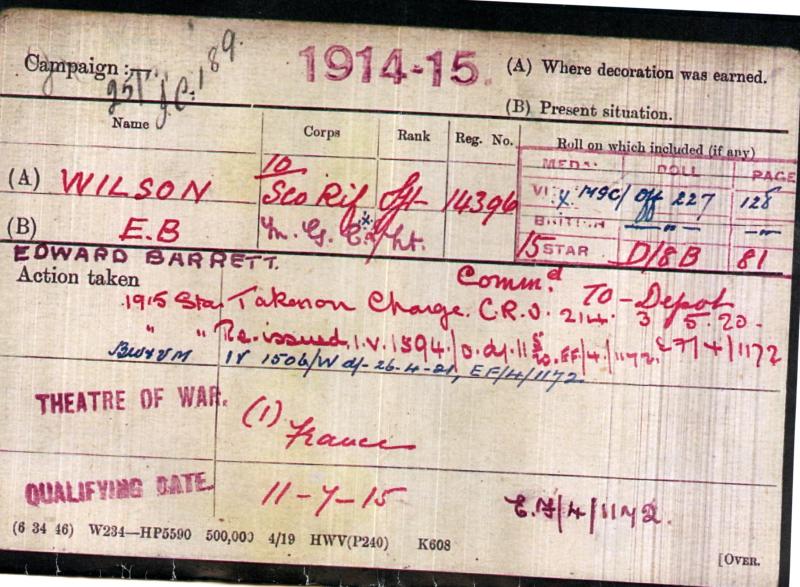 Campaign :— 1914-15. (A) Where decoration was earned.
189.
(B) Present situation.
Name Corps Rank Reg. No. Roll on which included (if any)
MEDAL ROLL PAGE
(A) WILSON 10/Sco Rif Sjt 14396
VICTORY MGC/Off 227 128
BRITISH —"— —"—
(B) E.B M. G. C. * Lt.
15 STAR D/8 B 81
EDWARD BARRETT.
Action taken Comm.d To - Depot
1915 Star Taken on Charge. C.R.V. 214. 3 5. 20.
" " Re-issued. I.V. 1594/
BW&VM IV 1506/W d/- 26-4-21, EF/4/1172
THEATRE OF WAR. (1) France
QUALIFYING DATE. 11-7-15 E.F/4/1172.
(6 34 46) W234—HP5590 500,000 4/19 HWV(P240) K608
[OVER.